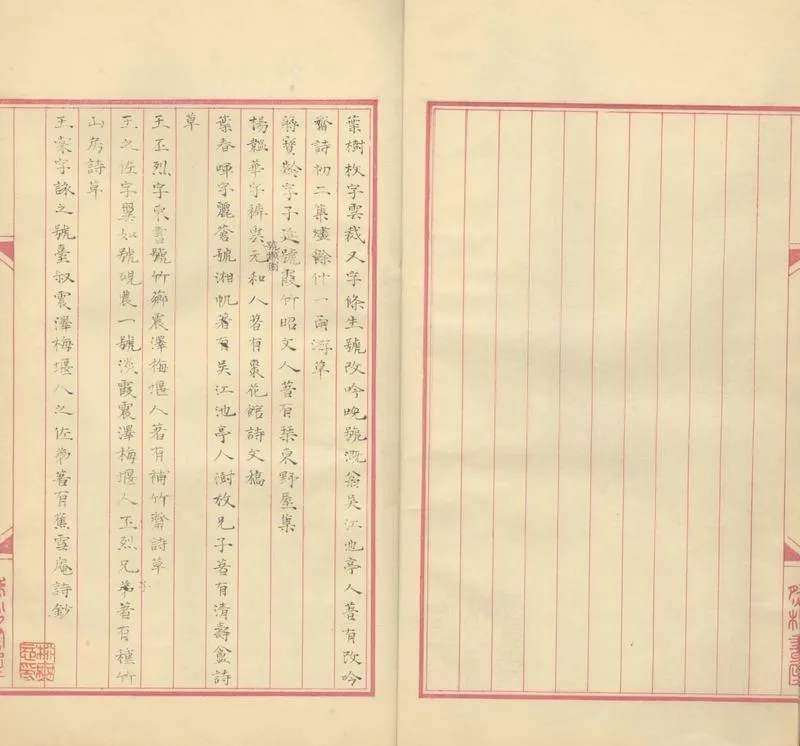 葉樹枚字雲裁又字條生號改吟晚號漑翁吳江池亭人著有改吟
齋詩初二集燼餘什一雨游草
蔣寶齡字子延號霞竹昭文人著有琴東野屋集
楊韞華字稚雲元和人著有棗花館詩文稿
葉春暉字麗蒼號湘帆著有吳江池亭人樹枚兄子著有清壽盦詩
草
王丕烈字東書號竹薌震澤梅堰人著有補竹齋詩草
王之佐字翼如號硯農一號淡霞震澤梅堰人丕烈兄弟著有種竹
子
山房詩草
王蒙字詠之號臺叔震澤梅堰人之佐弟著有蕉雪庵詩鈔